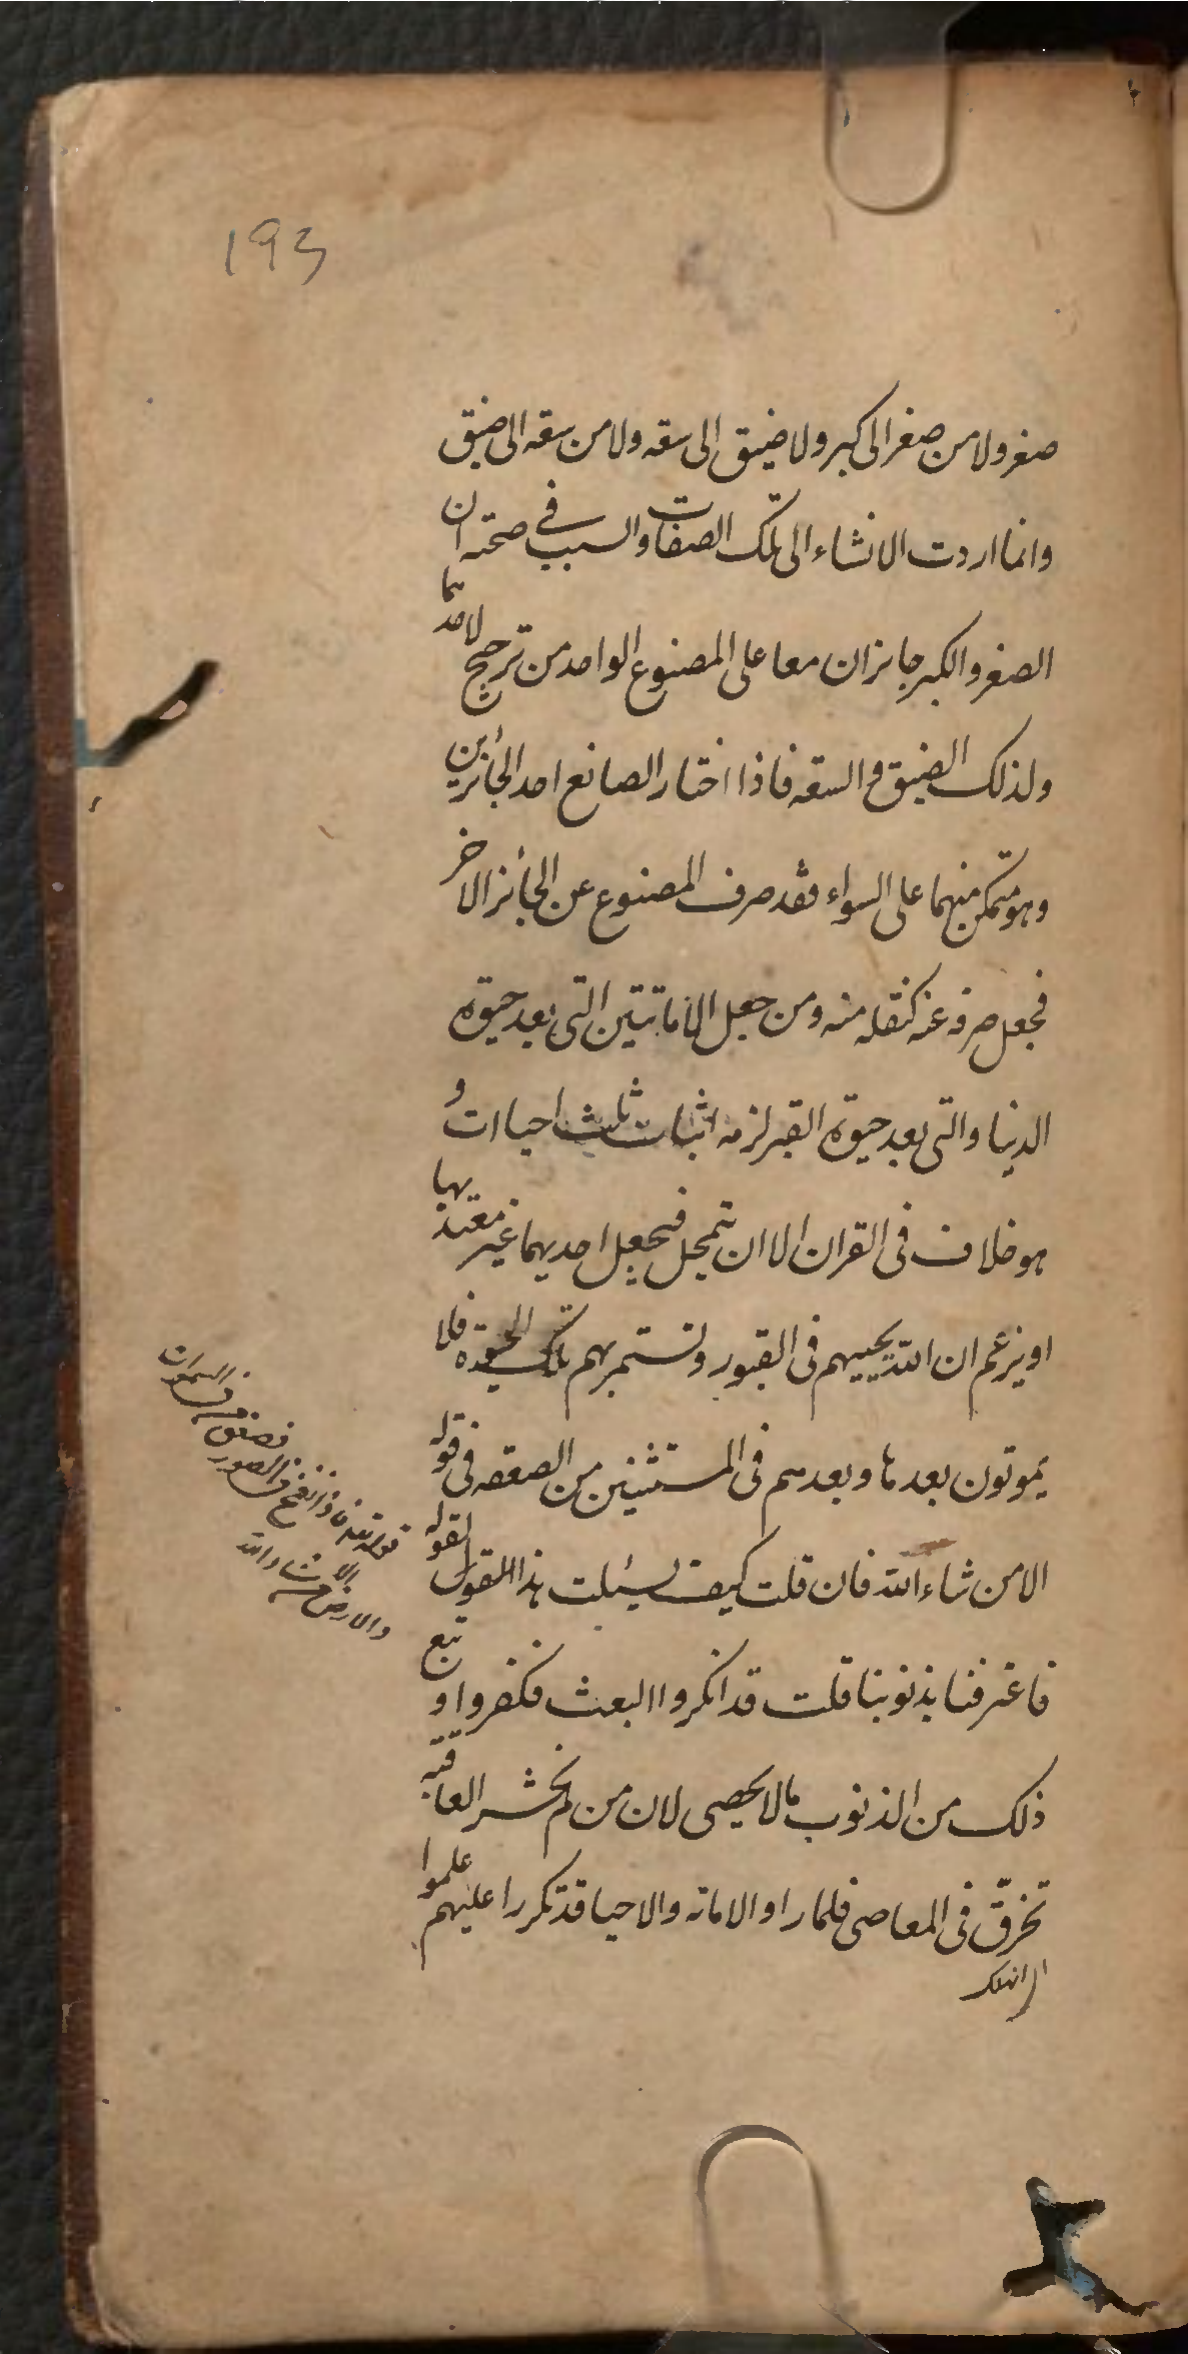 193
صغر ولا من صغر الى كبر ولا ضيق الى سقه ولا من سقه الى ضيق
وانما اردت الانشاء الى تلك الصفات والسبب في صحته ان
الصغر والكبر جايزان معا على المصنوع الواحد من ترجيح لاحدهما
ولذلك الضيق والسقه فاذا اختار الصانع احد الجائزين
وهو متمكن منهما على السواء فقد صرف المصنوع عن الجائز الاخر
فجعل صرفه عنه كنقله منه ومن جعل الاماتتين التى بعد حيوة
الدنيا والتى بعد حيوة القبر لزمه اثبات ثلث احياات و
هو خلاف فى القران الا ان يتمحل فيجعل احديهما غير معتد بها
او يزعم ان الله يحييهم فى القبور وتستمر بهم تلك الحيوة فلا
يموتون بعدها وبعدهم فى المستثنين من الصعقه فى قوله
الا من شاء الله فان قلت كيف سئلت هذا القول لقوله
فاعترفنا بذنوبنا قلت قد انكروا البعث فكفروا و تبع
ذلك من الذنوب ما لا يحصى لان من لم يخش العاقبه
تخرق فى المعاصى فلما راوا الاماته والاحيا قد تكررا عليهم علموا
قوله ونفخ فى الصور
فصعق من فى السموات
والارض الا من شاء الله